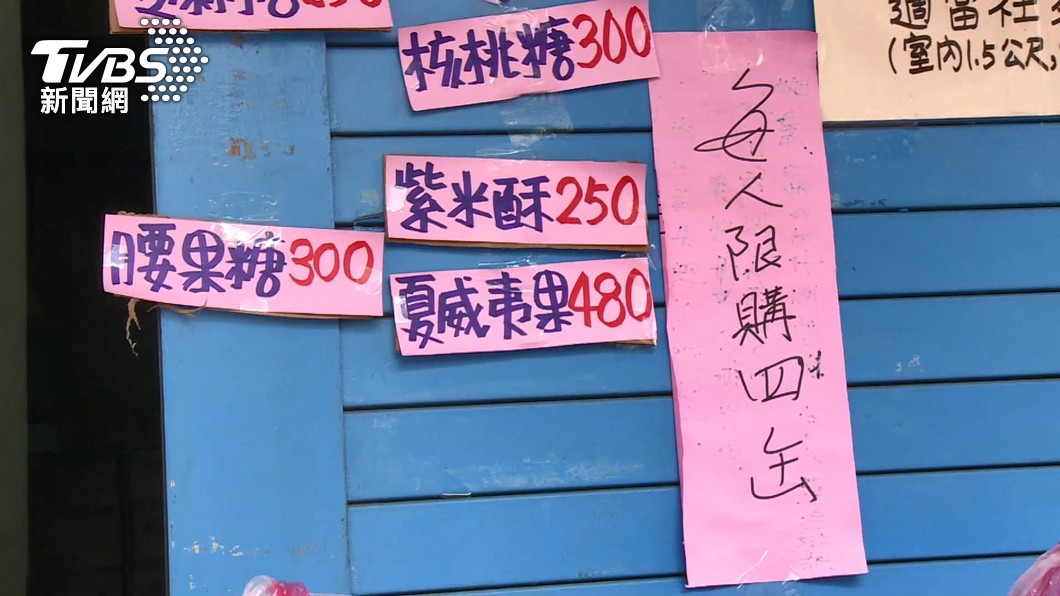 TVBS
新聞網
核桃糖300
紫米酥250
腰果糖300
夏威夷果480
每人限購四缶
適當社
(室內1.5公尺,